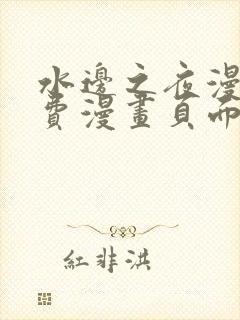 水邊之夜漫
費漫畫頁而
紅非洪